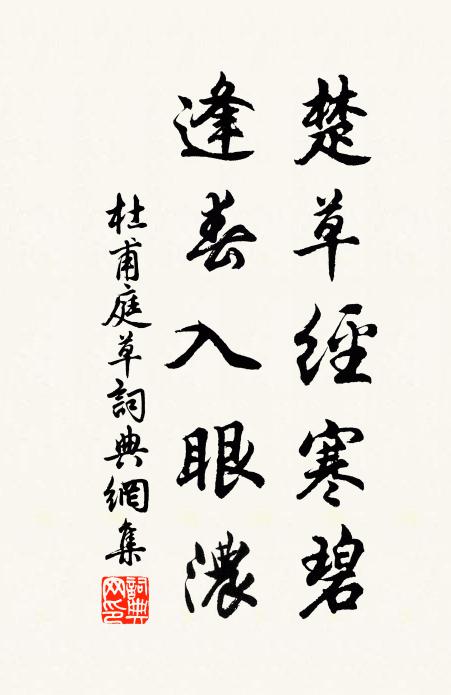 楚草經寒碧
逢春入眼濃
杜甫庭草詞典網集
詞典网印